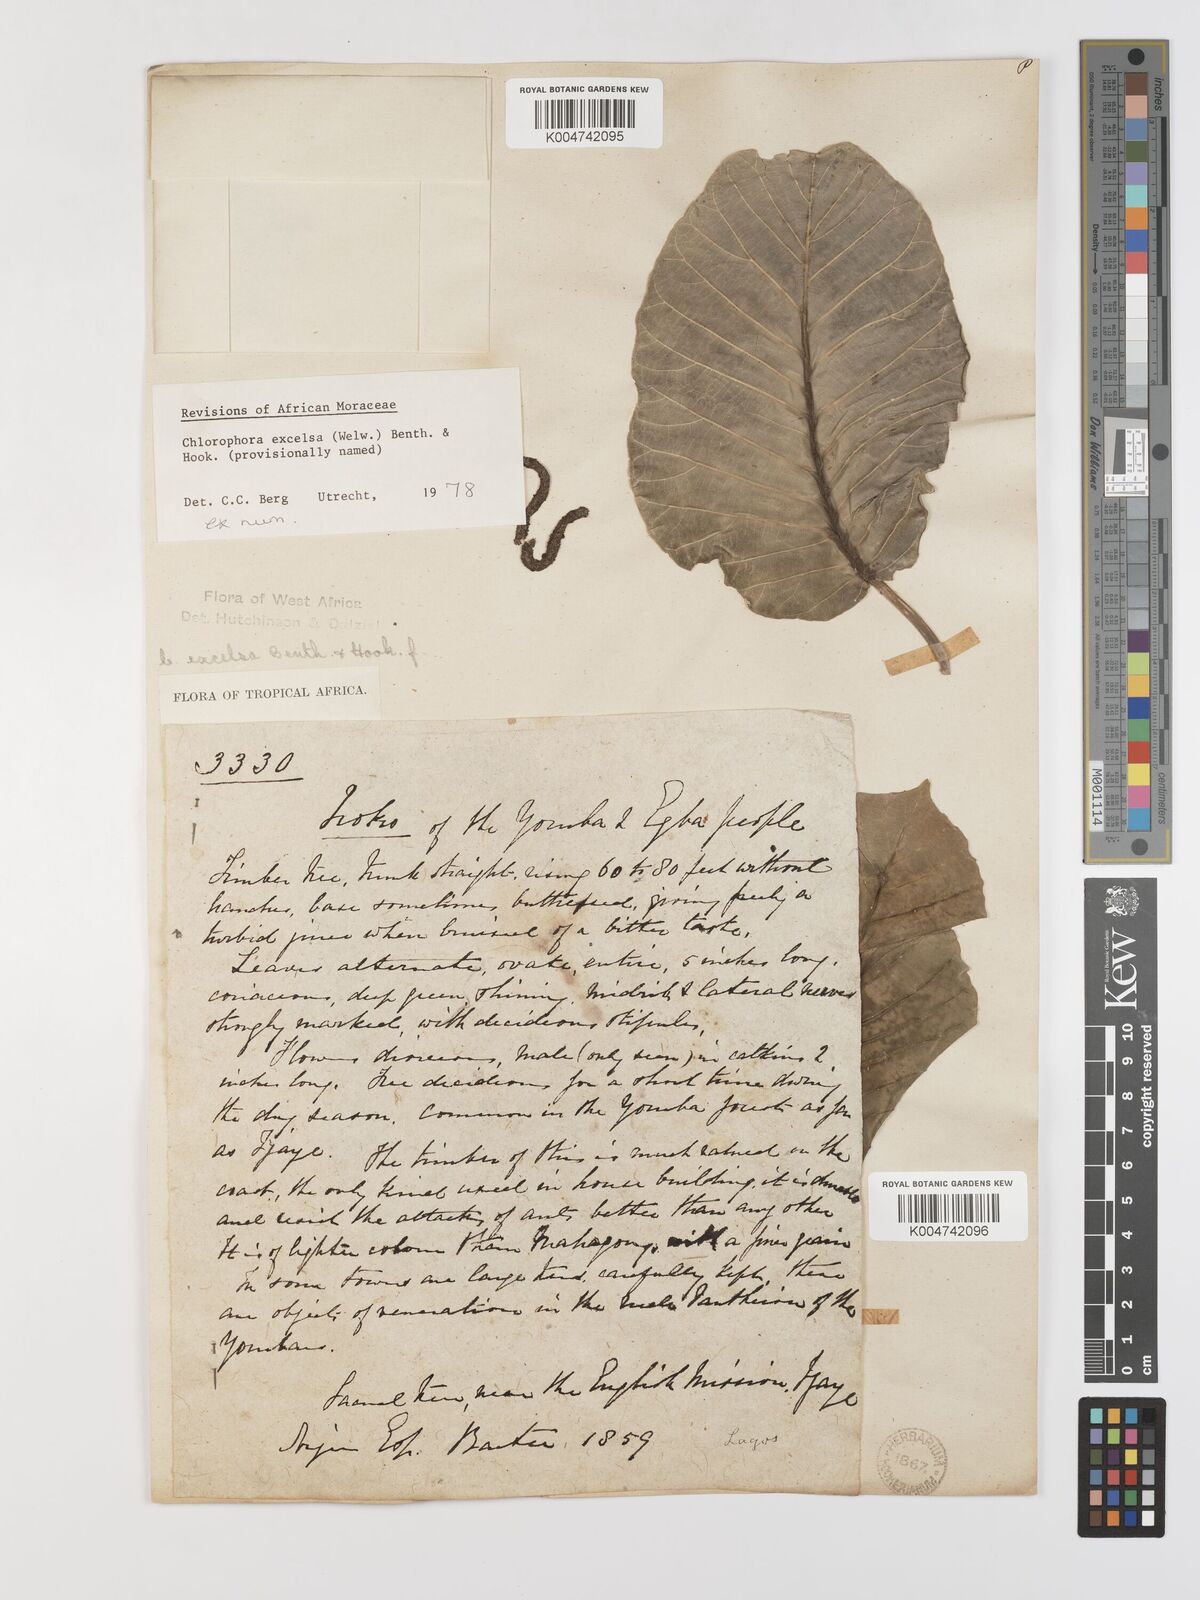 P
ROYAL BOTANIC GARDENS KEW
K004742095
Revisions of African Moraceae
Chlorophora excelsa (Welw.) Benth. &
Hook. (provisionally named)
Det. C.C. Berg Utrecht, 1978
Flora of West Africa
Det. Hutchinson & Dalziel
excelsa Benth. & Hook. f.
FLORA OF TROPICAL AFRICA.
3330
Iroko of the Yoruba & Egba people
Timber tree, trunk straight, rising 60 to 80 feet without
branches, base sometimes buttressed, giving freely a
turbid juice when bruised of a bitter taste.
Leaves alternate, ovate, entire, 5 inches long,
coriaceous, deep green, shining, midrib & lateral nerves
strongly marked, with deciduous stipules,
Flowers dioecious, male (only seen) in catkins 2
inches long. Tree deciduous for a short time during
the dry season. Common in the Yoruba forests as far
as Ijaye. The timber of this is much valued on the
coast, the only kind used in house building, it is durable
and resist the attacks of ants better than any other
It is of lighter colour than Mahagony, with a finer grain
In some towns are large trees, carefully kept, these
are objects of veneration in the Pantheion of the
Yorubans.
Sacred tree, near the English Mission, Ijaye
Niger Exp. Barter, 1859
Lagos
HERBARIUM
1867
HOOKERIANUM
ROYAL BOTANIC GARDENS KEW
K004742096
inches
centimeters
Density
Don Williams
M001114
KEW
Royal Botanic Gardens
0 1 2 3 4 5 6 7 8 9 10
cm
copyright reserved